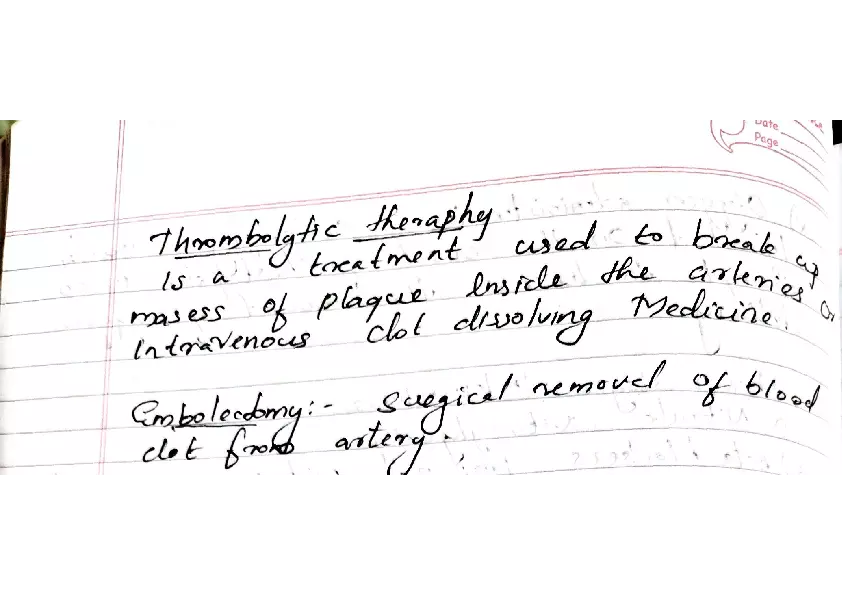 Date
Page
Thrombolytic theraphy
is a treatment used to break up
masess of plaque Inside the arteries or
Intravenous clot dissolving Medicine.
Embolectomy:- Suegical removel of blood
clot from artery.